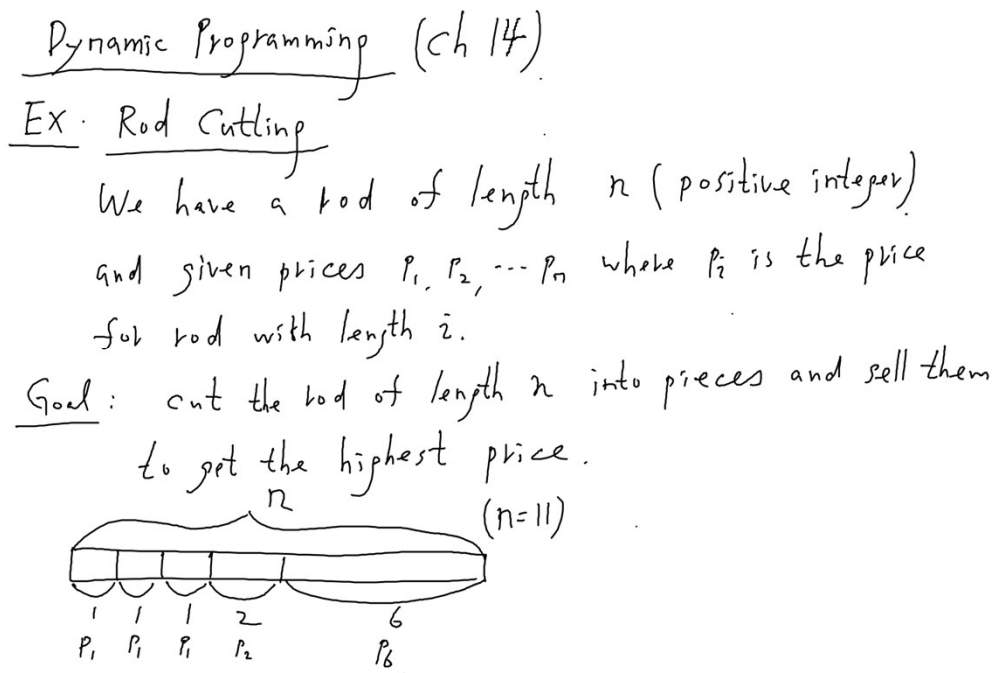 Dynamic Programming (ch 14)
Ex. Rod Cutting
We have a rod of length n (positive integer)
and given prices P₁, P₂, ... Pₙ where Pᵢ is the price
for rod with length i.
Goal: cut the rod of length n into pieces and sell them
to get the highest price.
n
(n=11)
1 1 1 2 6
P₁ P₁ P₁ P₂ P₆